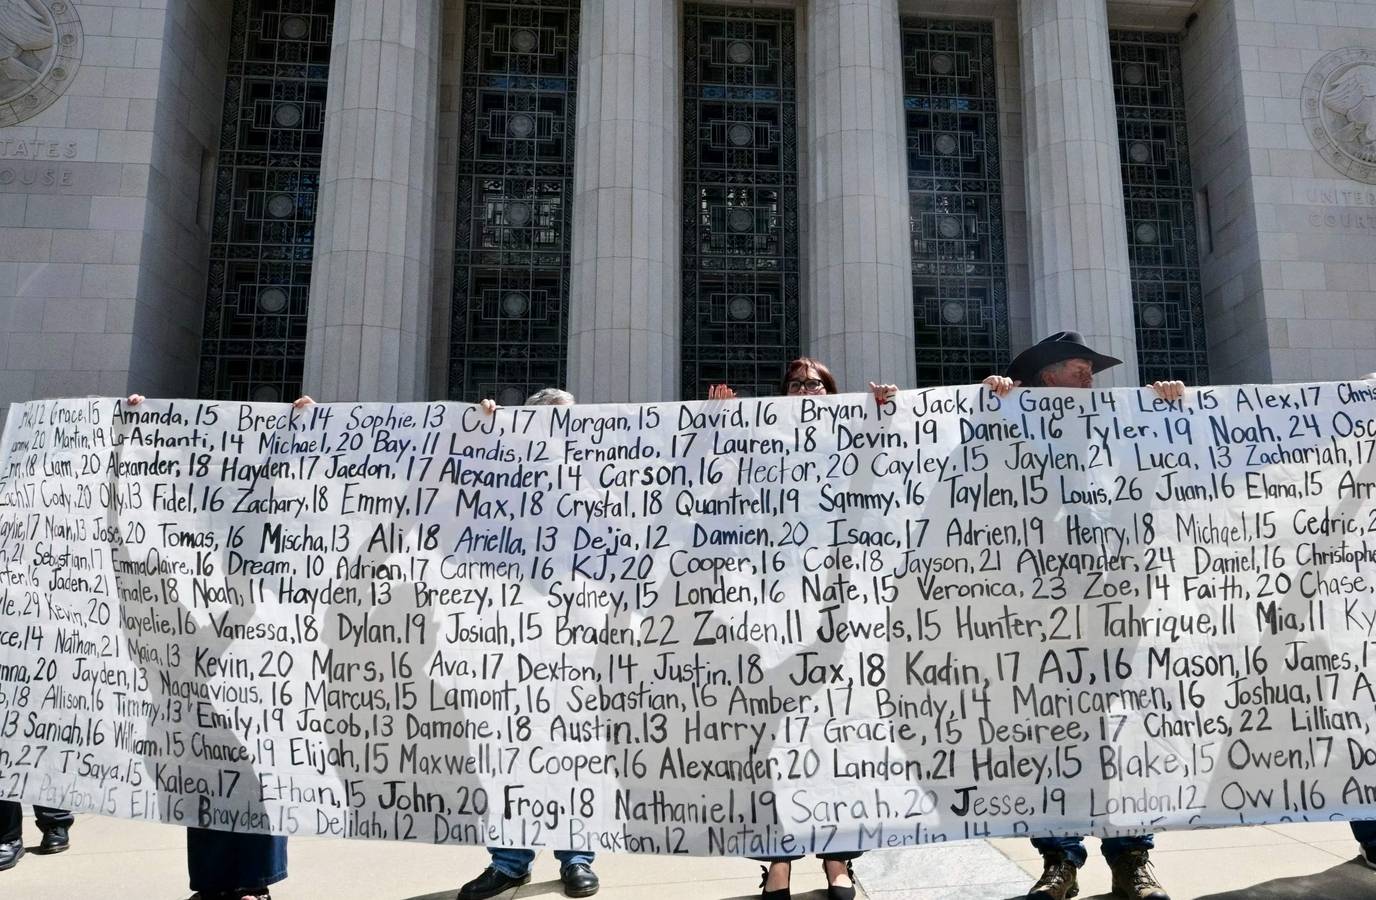 TATES
OUSE
UNITED
COURT
12 Grace,15 Amanda, 15 Breck, 14 Sophie, 13 CJ, 17 Morgan, 15 David, 16 Bryan, 15 Jack, 15 Gage, 14 Lexi, 15 Alex, 17 Chris
20 Martin, 19 La-Ashanti, 14 Michael, 20 Bay, 11 Landis, 12 Fernando, 17 Lauren, 18 Devin, 19 Daniel, 16 Tyler, 19 Noah, 24 Osc
18 Liam, 20 Alexander, 18 Hayden, 17 Jaedon, 17 Alexander, 14 Carson, 16 Hector, 20 Cayley, 15 Jaylen, 21 Luca, 13 Zachariah, 17
Zach, 17 Cody, 20 Olly, 13 Fidel, 16 Zachary, 18 Emmy, 17 Max, 18 Crystal, 18 Quantrell, 19 Sammy, 16 Taylen, 15 Louis, 26 Juan, 16 Elana, 15 Arr
aylie, 17 Noah, 13 Jose, 20 Tomas, 16 Mischa, 13 Ali, 18 Ariella, 13 De'ja, 12 Damien, 20 Isaac, 17 Adrien, 19 Henry, 18 Michael, 15 Cedric, 2
n, 21 Sebastian, 17 EmmaClaire, 16 Dream, 10 Adrian, 17 Carmen, 16 KJ, 20 Cooper, 16 Cole, 18 Jayson, 21 Alexander, 24 Daniel, 16 Christophe
rter, 16 Jaden, 21 Finale, 18 Noah, 11 Hayden, 13 Breezy, 12 Sydney, 15 Londen, 16 Nate, 15 Veronica, 23 Zoe, 14 Faith, 20 Chase,
yle, 29 Kevin, 20 Nayelie, 16 Vanessa, 18 Dylan, 19 Josiah, 15 Braden, 22 Zaiden, 11 Jewels, 15 Hunter, 21 Tahrique, 11 Mia, 11 Ky
ce, 14 Nathan, 21 Maia, 13 Kevin, 20 Mars, 16 Ava, 17 Dexton, 14 Justin, 18 Jax, 18 Kadin, 17 AJ, 16 Mason, 16 James, 17
nna, 20 Jayden, 13 Naquavious, 16 Marcus, 15 Lamont, 16 Sebastian, 16 Amber, 17 Bindy, 14 Maricarmen, 16 Joshua, 17 A
b, 18 Allison, 16 Timmy, 13 Emily, 19 Jacob, 13 Damone, 18 Austin, 13 Harry, 17 Gracie, 15 Desiree, 17 Charles, 22 Lillian,
13 Saniah, 16 William, 15 Chance, 19 Elijah, 15 Maxwell, 17 Cooper, 16 Alexander, 20 Landon, 21 Haley, 15 Blake, 15 Owen, 17 Do
n, 27 T'Saya, 15 Kalea, 17 Ethan, 15 John, 20 Frog, 18 Nathaniel, 19 Sarah, 20 Jesse, 19 London, 12 Owl, 16 Am
21 Payton, 15 Eli, 16 Brayden, 15 Delilah, 12 Daniel, 12 Braxton, 12 Natalie, 17 Merlin, 14